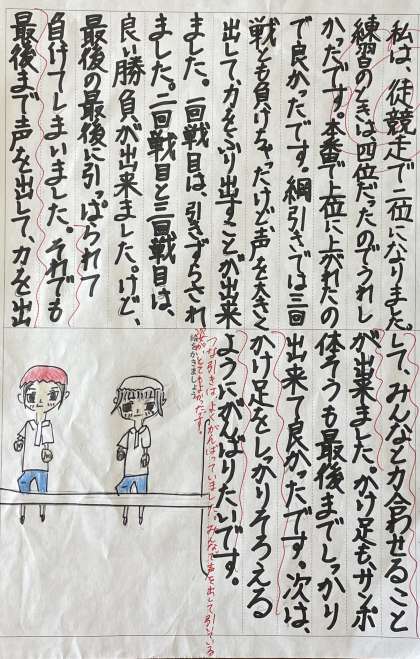 私は、徒競走で二位になりました。
練習のときは四位だったのでうれし
かったです。本番で上位に上がれたの
で良かったです。綱引きでは三回
戦とも負けちゃったけど、声を大きく
出して、力をふり出すことが出来
ました。一回戦目は、引きずらされ
ました。二回戦目と三回戦目は、
良い勝負が出来ました。けど、
最後の最後に引っぱられて
負けてしまいました。それでも
最後まで声を出して、力を出
して、みんなと力合わせること
が出来ました。かけ足も、サンポ
体そうも最後までしっかり
出来て良かったです。次は、
かけ足をしっかりそろえる
ようにがんばりたいです。
つな引きは、よくがんばっていました。みんなで声を出して引いている
姿がとてもよかったです。
絵をかきましょう